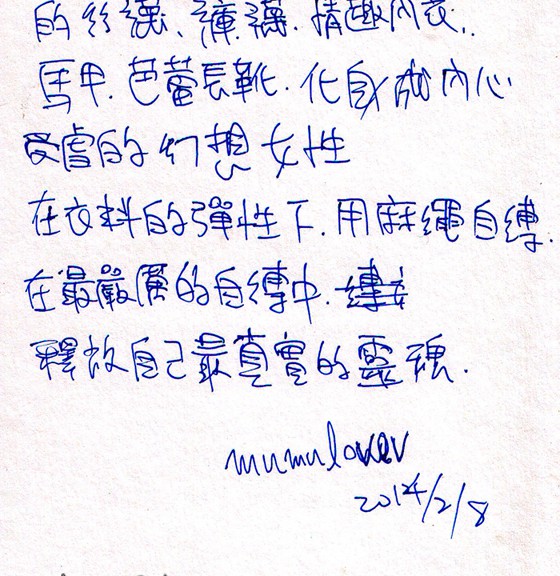 的絲襪、褲襪．情趣內衣..
馬甲．芭蕾長靴．化身成內心
受虐的幻想女性
在衣料的彈性下．用麻繩自縛．
在最嚴厲的自縛中．
釋放自己最真實的靈魂．
mumulover
2014/2/8